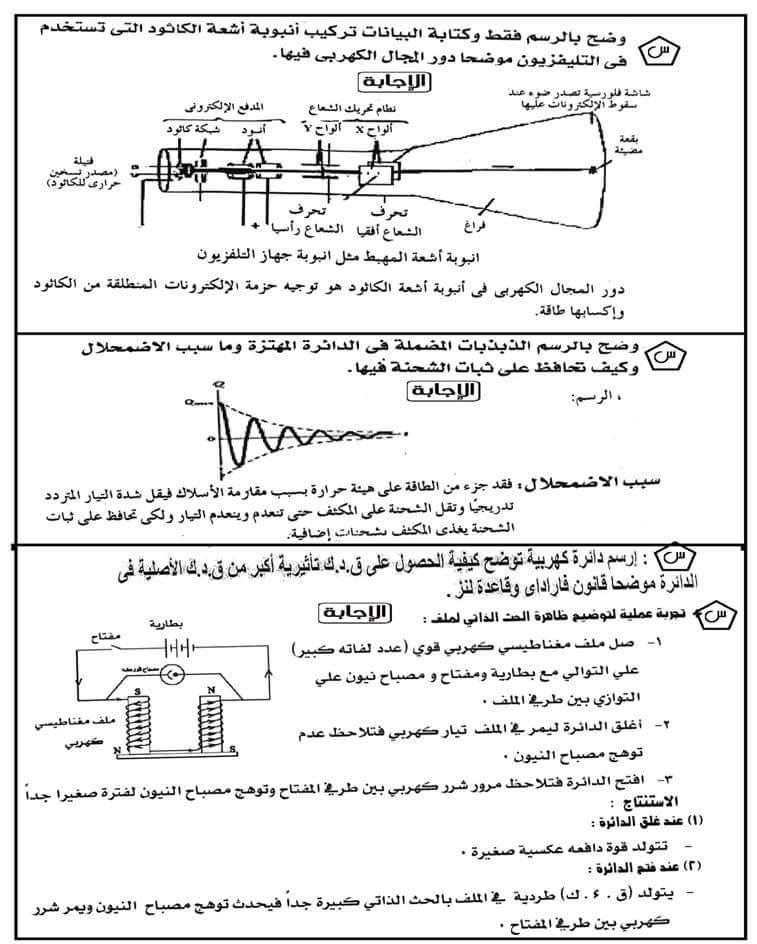 س وضح بالرسم فقط وكتابة البيانات تركيب أنبوبة أشعة الكاثود التى تستخدم
فى التليفزيون موضحا دور المجال الكهربى فيها.
الإجابة
شاشة فلورسية تصدر ضوء عند
سقوط الإلكترونات عليها
نظام تحريك الشعاع
المدفع الإلكترونى
ألواح X
ألواح Y
أنود
شبكة كاثود
بقعة
مضيئة
فتيلة
(مصدر تسخين
حرارى للكاثود)
فراغ
تحرف
الشعاع أفقيا
تحرف
الشعاع رأسيا
+
انبوبة أشعة المهبط مثل انبوبة جهاز التلفزيون
دور المجال الكهربى فى أنبوبة أشعة الكاثود هو توجيه حزمة الإلكترونات المنطلقة من الكاثود
وإكسابها طاقة.
س وضح بالرسم الذبذبات المضملة فى الدائرة المهتزة وما سبب الاضمحلال
وكيف تحافظ على ثبات الشحنة فيها.
الإجابة
، الرسم:
Q
0
سبب الاضمحلال: فقد جزء من الطاقة على هيئة حرارة بسبب مقارمة الأسلاك فيقل شدة التيار المتردد
تدريجيًا وتقل الشحنة على المكثف حتى تنعدم وينعدم التيار ولكى تحافظ على ثبات
الشحنة يغذى المكثف بشحنات إضافية.
س : إرسم دائرة كهربية توضح كيفية الحصول على ق.د.ك تأثيرية أكبر من ق.د.ك الأصلية فى
الدائرة موضحا قانون فاراداى وقاعدة لنز .
س تجربة عملية لتوضيح ظاهرة الحث الذاتي لملف :
الإجابة
١- صل ملف مغناطيسي كهربي قوي (عدد لفاته كبير)
علي التوالي مع بطارية ومفتاح و مصباح نيون علي
التوازي بين طرفي الملف .
بطارية
مفتاح
S
N
ملف مغناطيسي
كهربي
N
S
٢- أغلق الدائرة ليمر في الملف تيار كهربي فتلاحظ عدم
توهج مصباح النيون .
٣- افتح الدائرة فتلاحظ مرور شرر كهربي بين طرفي المفتاح وتوهج مصباح النيون لفترة صغيرا جداً
الاستنتاج :
(١) عند غلق الدائرة :
- تتولد قوة دافعه عكسية صغيرة .
(٢) عند فتح الدائرة :
- يتولد (ق . ء . ك) طردية في الملف بالحث الذاتي كبيرة جداً فيحدث توهج مصباح النيون ويمر شرر
كهربي بين طرفي المفتاح .